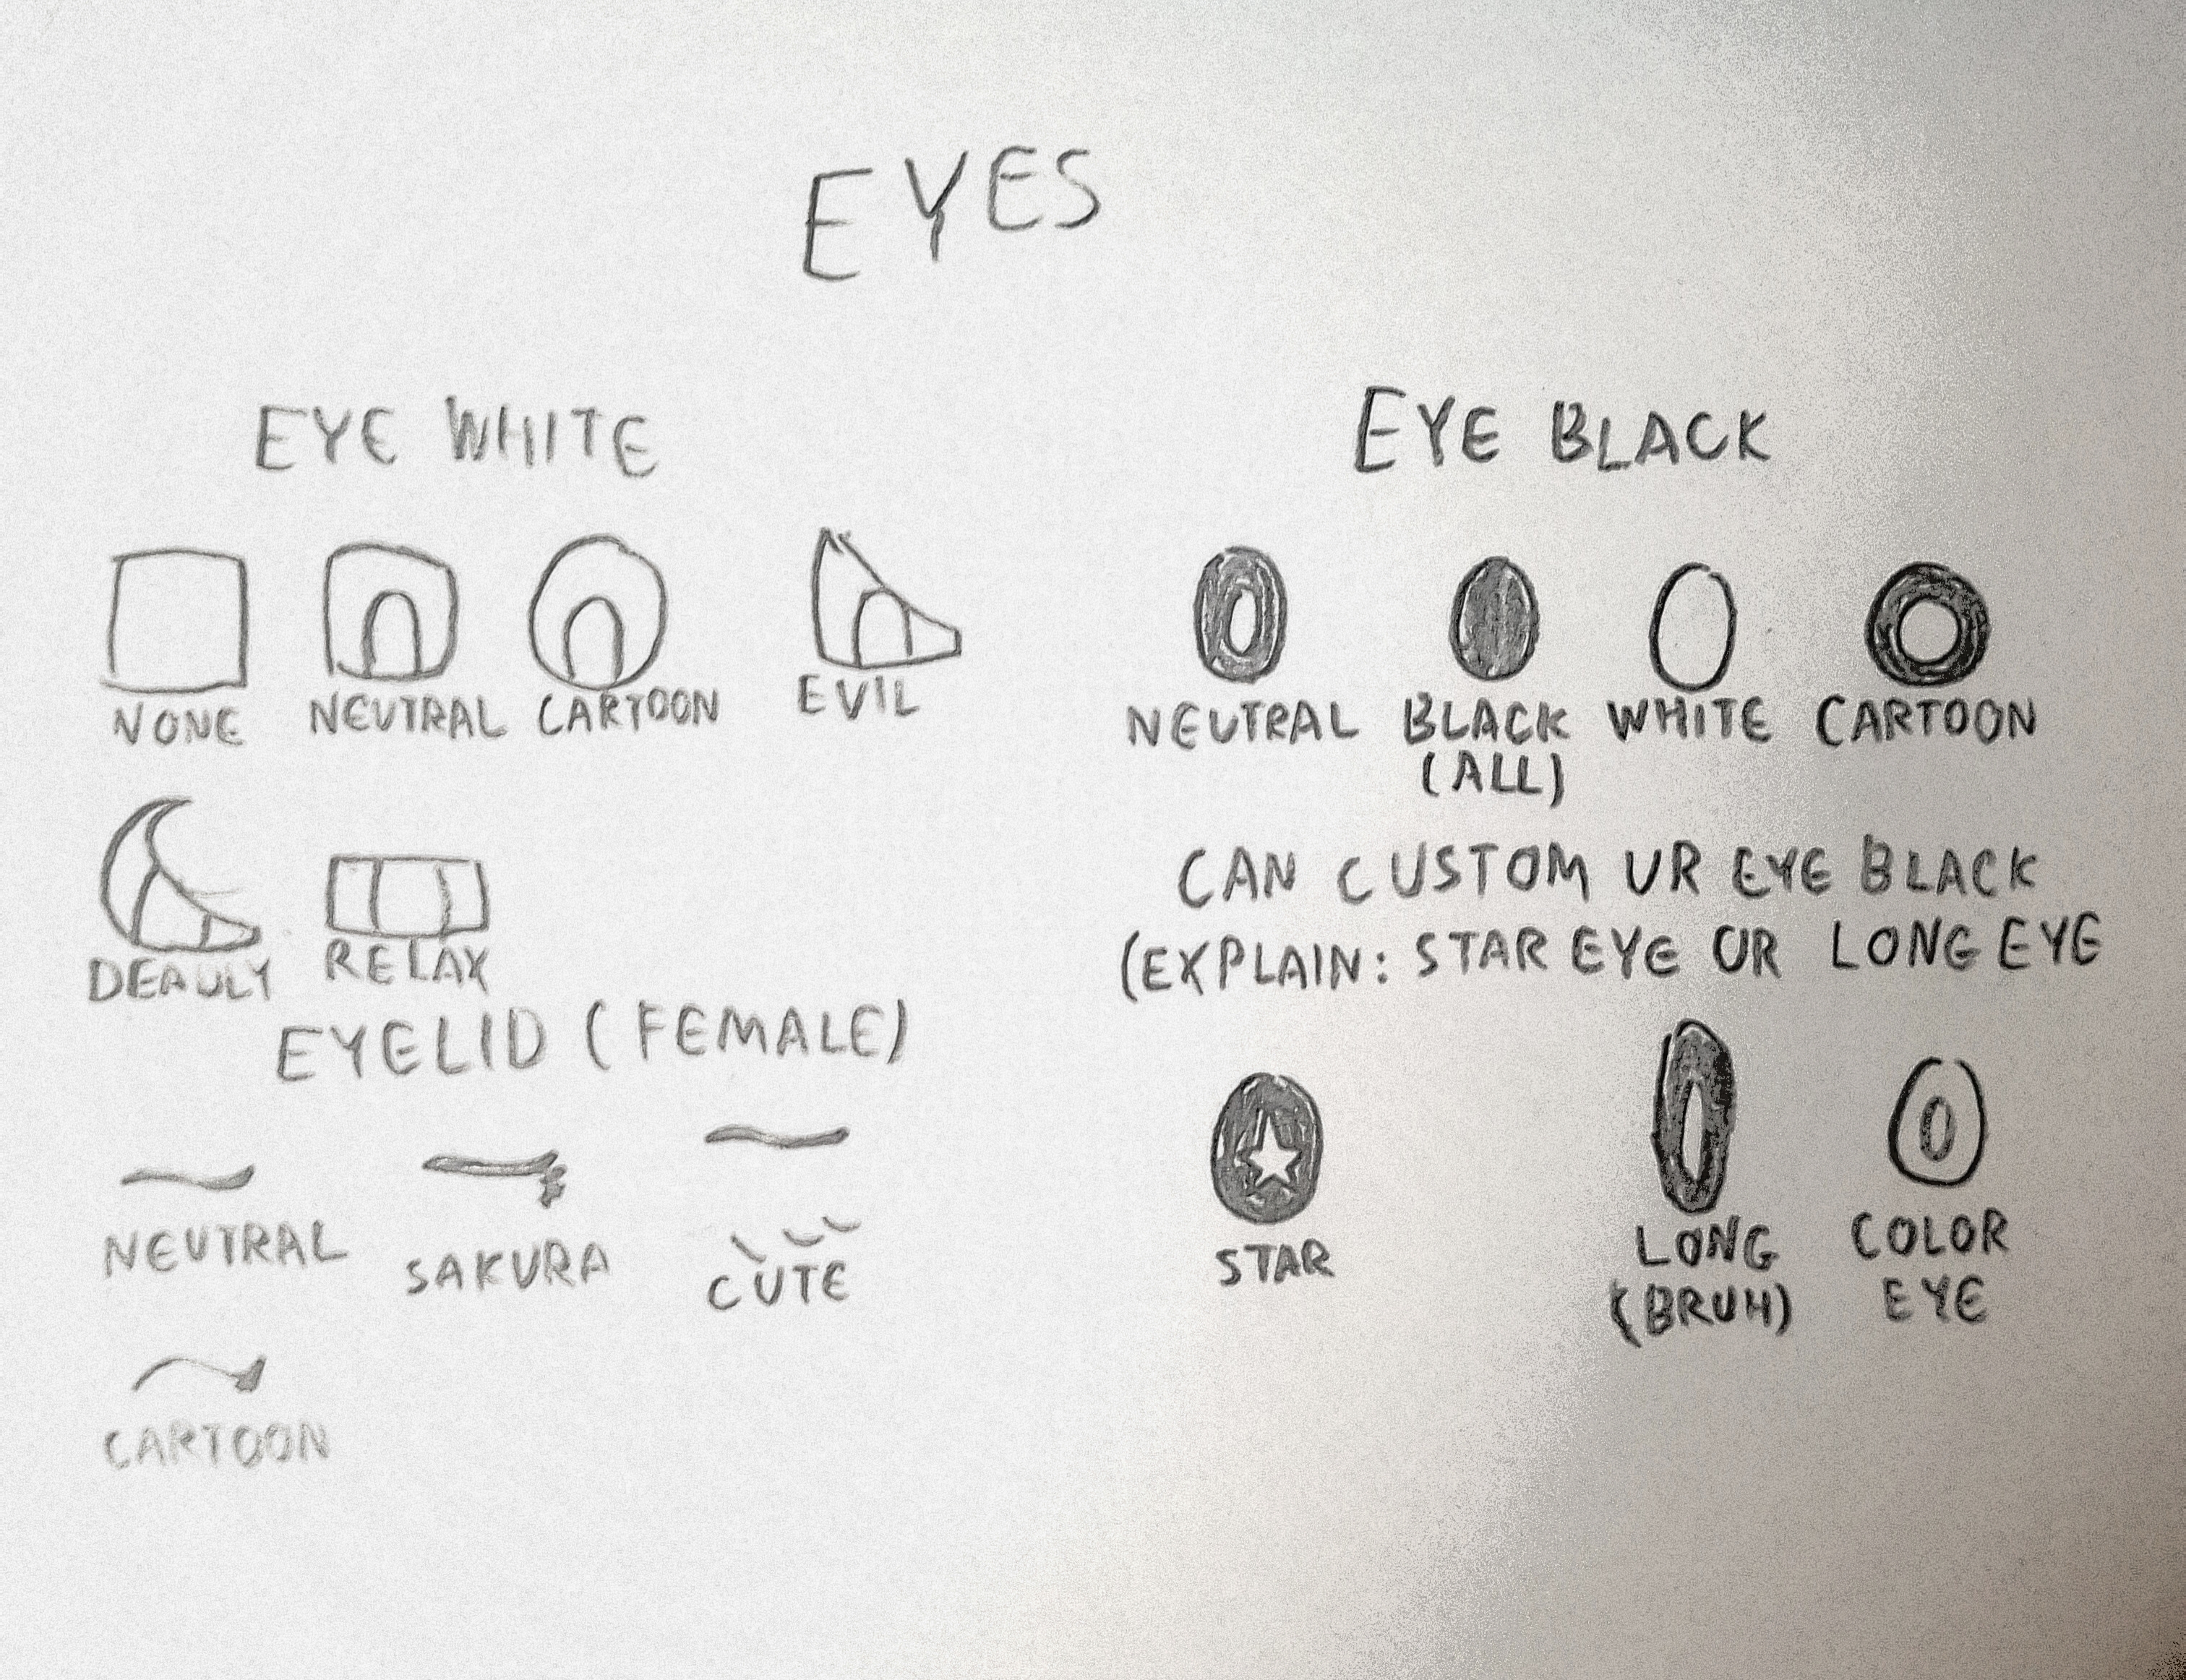 EYES
EYE WHITE
NONE NEUTRAL CARTOON EVIL
DEADLY RELAX
EYELID (FEMALE)
NEUTRAL SAKURA CUTE
CARTOON
EYE BLACK
NEUTRAL BLACK WHITE CARTOON
(ALL)
CAN CUSTOM UR EYE BLACK
(EXPLAIN: STAR EYE OR LONG EYE
STAR LONG COLOR
(BRUH) EYE